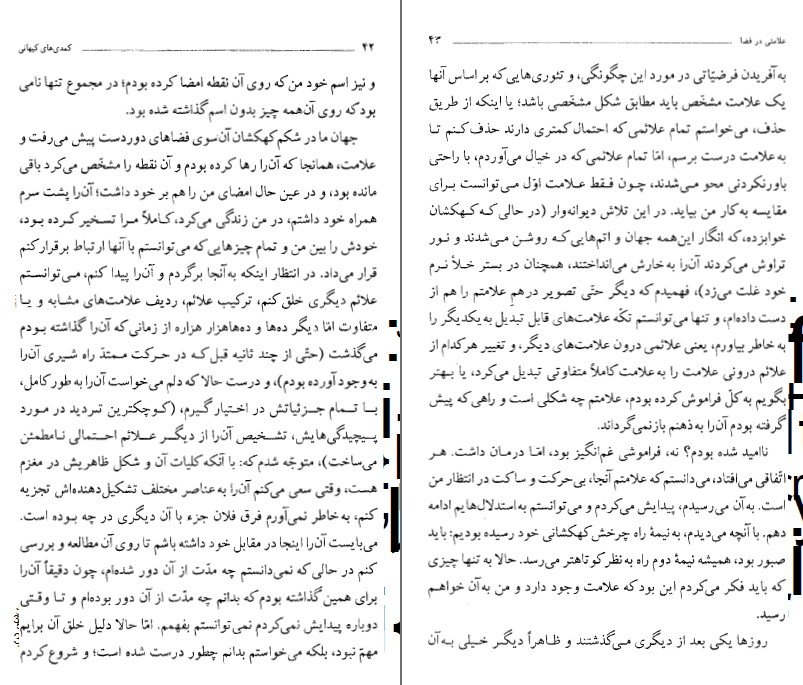 ۴۲ کمدی‌های کیهانی
و نیز اسم خود من که روی آن نقطه امضا کرده بودم؛ در مجموع تنها نامی
بود که روی آن‌همه چیز بدون اسم گذاشته شده بود.
جهان ما در شکم کهکشان آن‌سوی فضاهای دوردست پیش می‌رفت و
علامت، همانجا که آن‌را رها کرده بودم و آن نقطه را مشخّص می‌کرد باقی
مانده بود، و در عین حال امضای من را هم بر خود داشت؛ آن‌را پشت سرم
همراه خود داشتم، در من زندگی می‌کرد، کاملاً مرا تسخیر کرده بود،
خودش را بین من و تمام چیزهایی که می‌توانستم با آنها ارتباط برقرار کنم
قرار می‌داد. در انتظار اینکه به‌آنجا برگردم و آن‌را پیدا کنم، می‌توانستم
علائم دیگری خلق کنم، ترکیب علائم، ردیف علامت‌های مشابه و یا
متفاوت امّا دیگر ده‌ها و ده‌هاهزار هزاره از زمانی که آن‌را گذاشته بودم
می‌گذشت (حتّی از چند ثانیه قبل که در حرکت ممتدّ راه شیری آن‌را
به‌وجود آورده بودم)، و درست حالا که دلم می‌خواست آن‌را به طور کامل،
با تمام جزئیاتش در اختیار گیرم، (کوچکترین تردید در مورد
پیچیدگی‌هایش، تشخیص آن‌را از دیگر علائم احتمالی نامطمئن
می‌ساخت)، متوجّه شدم که: با آنکه کلیات آن و شکل ظاهریش در مغزم
هست، وقتی سعی می‌کنم آن‌را به‌عناصر مختلف تشکیل‌دهنده‌اش تجزیه
کنم، به‌خاطر نمی‌آورم فرق فلان جزء با آن دیگری در چه بوده است.
می‌بایست آن‌را اینجا در مقابل خود داشته باشم تا روی آن مطالعه و بررسی
کنم در حالی که نمی‌دانستم چه مدّت از آن دور شده‌ام، چون دقیقاً آن‌را
برای همین گذاشته بودم که بدانم چه مدّت از آن دور بوده‌ام و تا وقتی
دوباره پیدایش نمی‌کردم نمی‌توانستم بفهمم. امّا حالا دلیل خلق آن برایم
مهمّ نبود، بلکه می‌خواستم بدانم چطور درست شده است؛ و شروع کردم
علامتی در فضا ۴۳
به‌آفریدن فرضیّاتی در مورد این چگونگی، و تئوری‌هایی که بر اساس آنها
یک علامت مشخّص باید مطابق شکل مشخّصی باشد؛ یا اینکه از طریق
حذف، می‌خواستم تمام علائمی که احتمال کمتری دارند حذف کنم تا
به‌علامت درست برسم، امّا تمام علائمی که در خیال می‌آوردم، با راحتی
باورنکردنی محو می‌شدند، چون فقط علامت اوّل می‌توانست برای
مقایسه به‌کار من بیاید. در این تلاش دیوانه‌وار (در حالی که کهکشان
خوابزده، که انگار این‌همه جهان و اتم‌هایی که روشن می‌شدند و نور
تراوش می‌کردند آن‌را به‌خارش می‌انداختند، همچنان در بستر خلأ نرم
خود غلت می‌زد)، فهمیدم که دیگر حتّی تصویر درهم علامتم را هم از
دست داده‌ام، و تنها می‌توانستم تکّه علامت‌های قابل تبدیل به‌یکدیگر را
به خاطر بیاورم، یعنی علائمی درون علامت‌های دیگر، و تغییر هرکدام از
علائم درونی علامت را به‌علامت کاملاً متفاوتی تبدیل می‌کرد، یا بهتر
بگویم به‌کلّ فراموش کرده بودم، علامتم چه شکلی است و راهی که پیش
گرفته بودم آن‌را به‌ذهنم بازنمی‌گرداند.
ناامید شده بودم؟ نه، فراموشی غم‌انگیز بود، امّا درمان داشت. هر
اتّفاقی می‌افتاد، می‌دانستم که علامتم آنجا، بی‌حرکت و ساکت در انتظار من
است. به‌آن می‌رسیدم، پیدایش می‌کردم و می‌توانستم به‌استدلال‌هایم ادامه
دهم. با آنچه می‌دیدم، به‌نیمهٔ راه چرخش کهکشانی خود رسیده بودیم: باید
صبور بود، همیشه نیمهٔ دوم راه به‌نظر کوتاهتر می‌رسد. حالا به تنها چیزی
که باید فکر می‌کردم این بود که علامت وجود دارد و من به‌آن خواهم
رسید.
روزها یکی بعد از دیگری می‌گذشتند و ظاهراً دیگر خیلی به‌آن